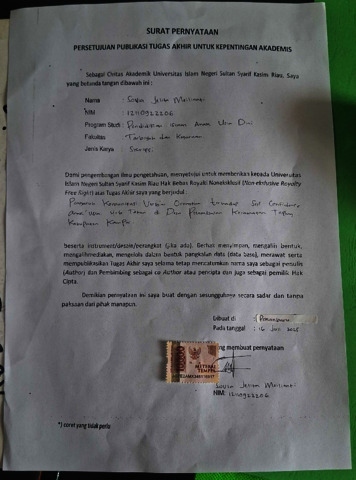 SURAT PERNYATAAN
PERSETUJUAN PUBLIKASI TUGAS AKHIR UNTUK KEPENTINGAN AKADEMIS
Sebagai Civitas Akademik Universitas Islam Negeri Sultan Syarif Kasim Riau, Saya
yang bertanda tangan dibawah ini :
Nama :
NIM : 12110922206
Program Studi : Pendidikan Islam Anak Usia Dini
Fakultas : Tarbiyah dan Keguruan
Jenis Karya : Skripsi
Demi pengembangan ilmu pengetahuan, menyetujui untuk memberikan kepada Universitas
Islam Negeri Sultan Syarif Kasim Riau Hak Bebas Royalti Noneksklusif (Non-exlusive Royalty
Free Right) atas Tugas Akhir saya yang berjudul :
Komunikasi Verbal Orangtua terhadap
anak usia Tahun di Desa Kecamatan
Kabupaten Kampar
Beserta instrument/desain/perangkat (jika ada). Berhak menyimpan, mengalih bentuk,
mengalihmediakan, mengelola dalam bentuk pangkalan data (data base), merawat serta
mempublikasikan Tugas Akhir saya selama tetap mencantumkan nama saya sebagai penulis
(Author) dan Pembimbing sebagai co Author atau pencipta dan juga sebagai pemilik Hak
Cipta.
Demikian pernyataan ini saya buat dengan sesungguhnya secara sadar dan tanpa
paksaan dari pihak manapun.
Dibuat di :
Pada tanggal : 16 Juli 2025
yang membuat pernyataan
10000
METERAI
TEMPEL
NIM: 12110922206
*) coret yang tidak perlu